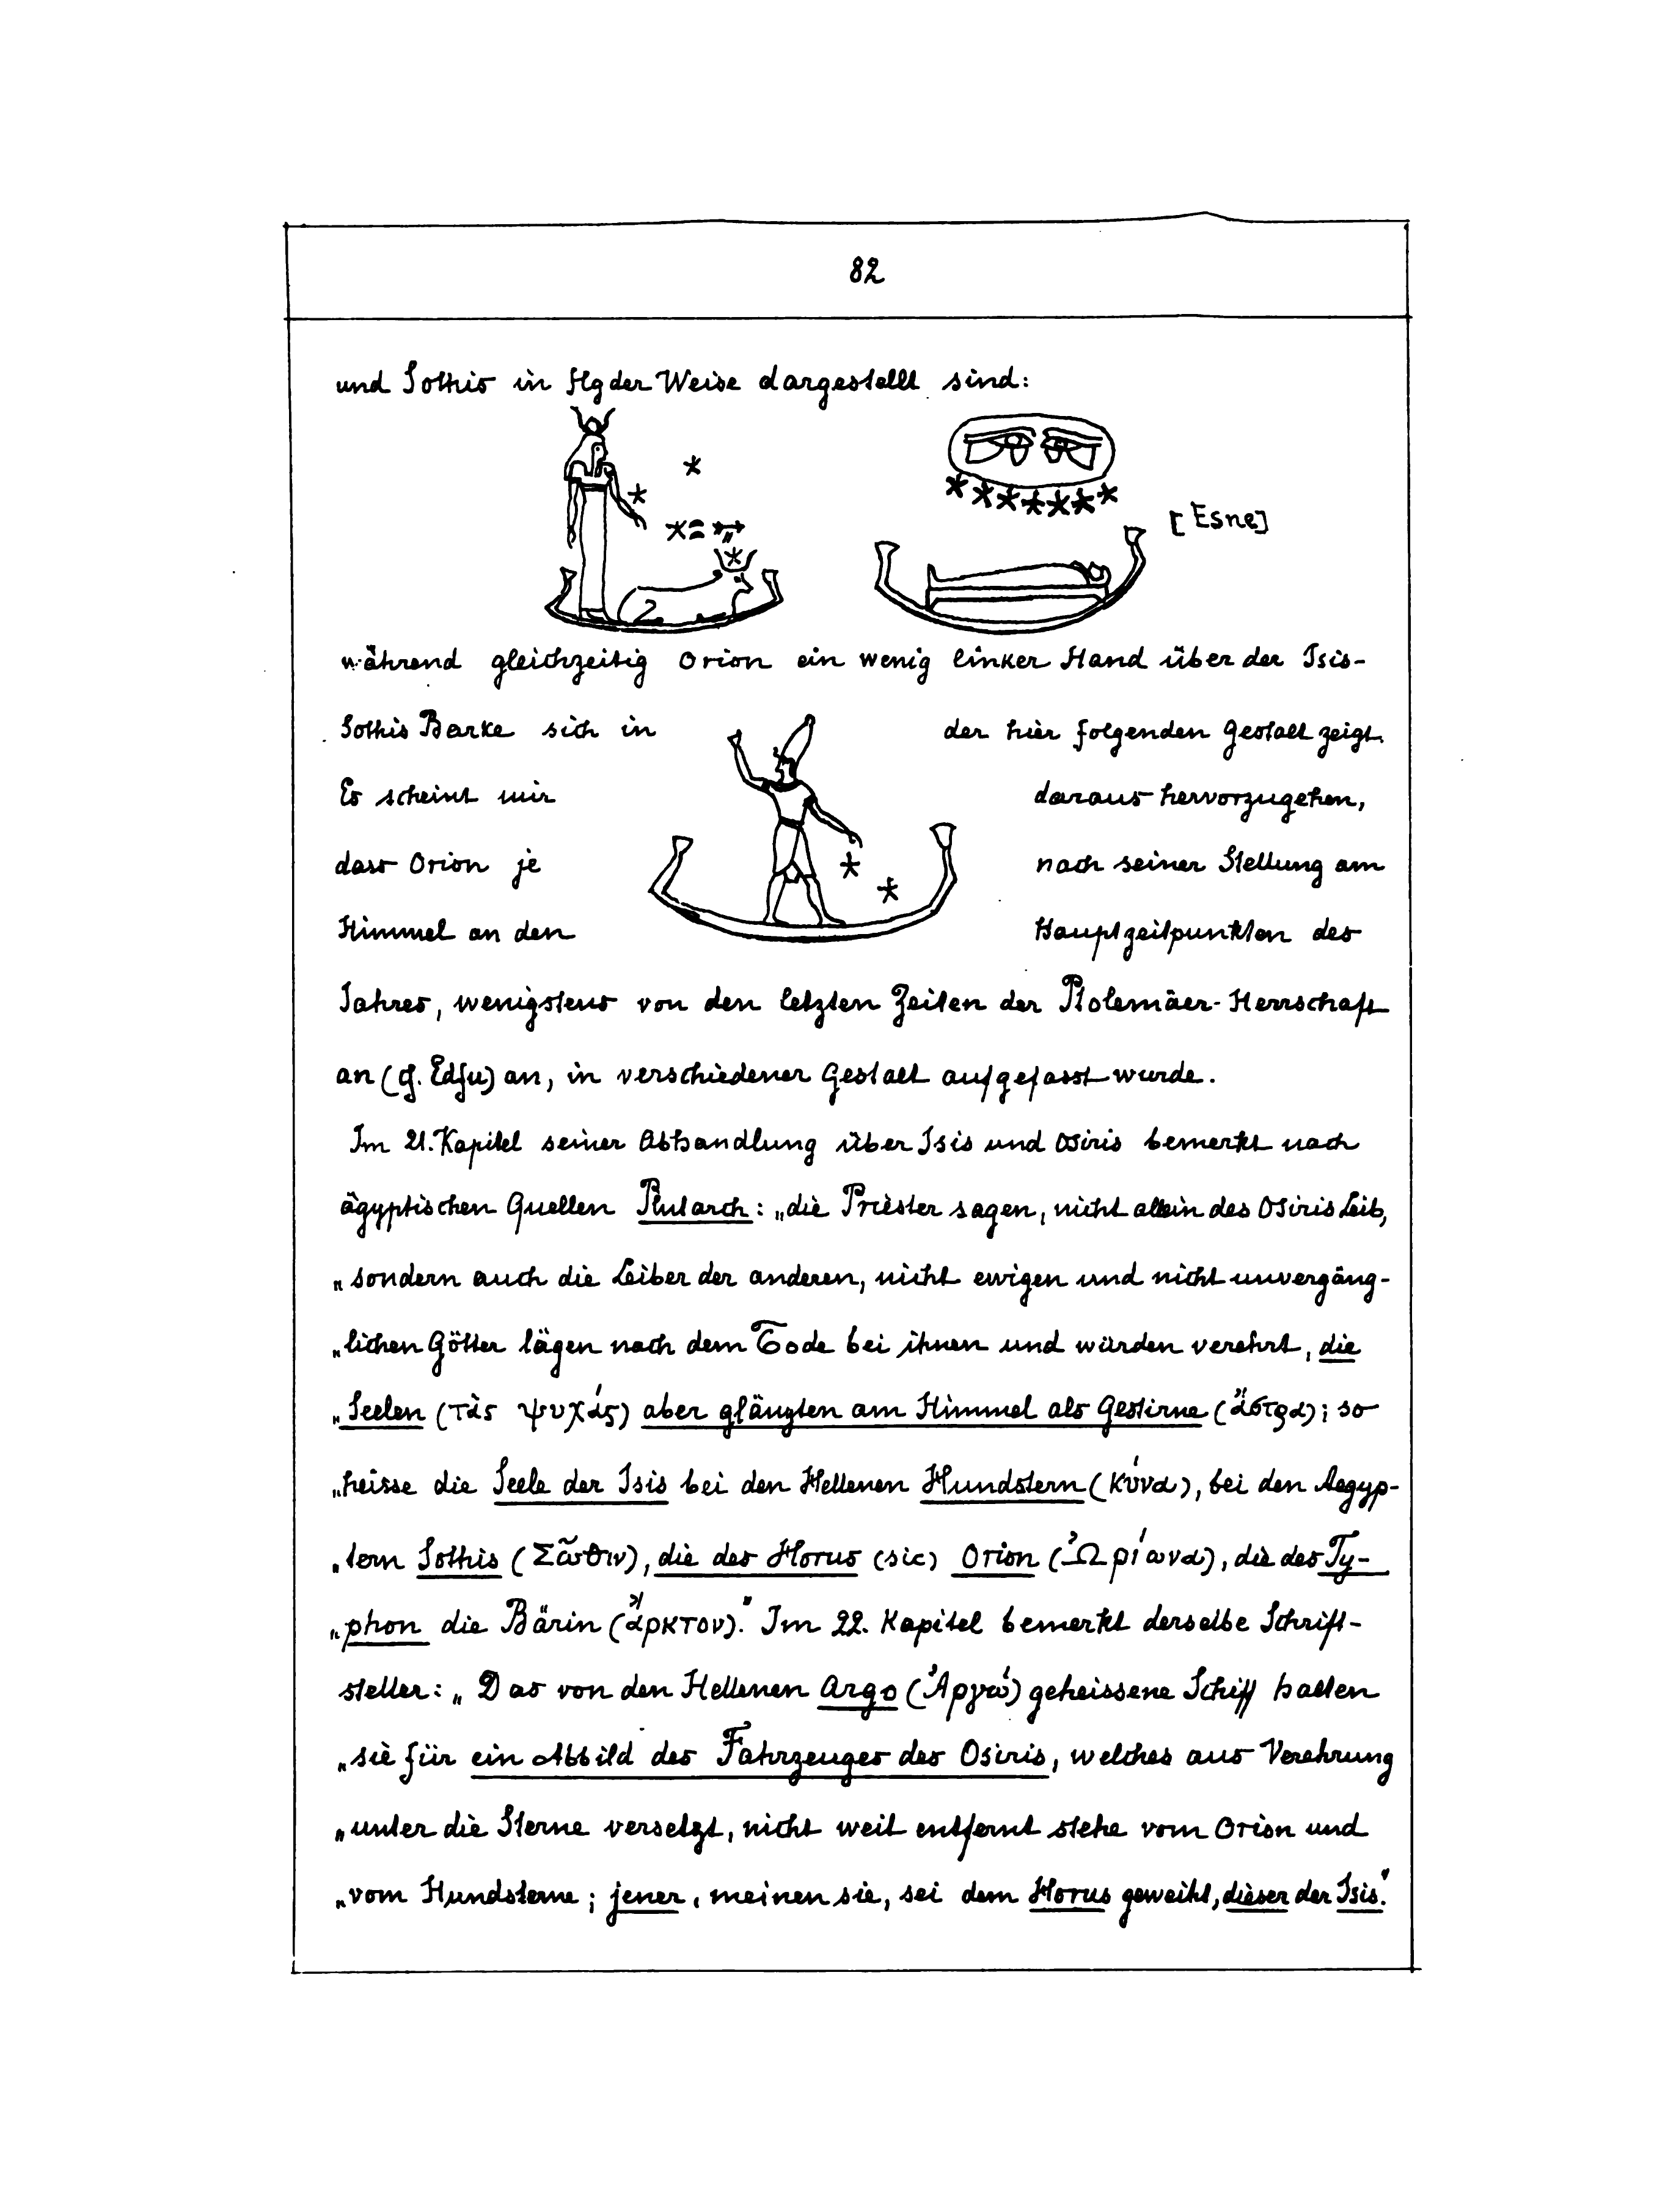 82
und Sothis in flgder Weise dargestellt sind:
[Esne]
während gleichzeitig Orion ein wenig linker Hand über der Isis-
Sothis Barke sich in der hier folgenden Gestalt zeigt.
Es scheint mir daraus hervorzugehen,
dass Orion je nach seiner Stellung am
Himmel an den Hauptzeitpunkten des
Jahres, wenigstens von den letzten Zeiten der Ptolemäer-Herrschaft
an (cf. Edfu) an, in verschiedener Gestalt aufgefasst wurde.
Im 21. Kapitel seiner Abhandlung über Isis und Osiris bemerkt nach
ägyptischen Quellen Plutarch: „die Priester sagen, nicht allein des Osiris Leib,
„sondern auch die Leiber der anderen, nicht ewigen und nicht unvergäng-
„lichen Götter lägen nach dem Tode bei ihnen und würden verehrt, die
„Seelen (τὰς ψυχάς) aber glänzten am Himmel als Gestirne (ἄστρα); so
„heisse die Seele der Isis bei den Hellenen Hundstern (κύνα), bei den Aegyp-
„tern Sothis (Σῶθιν), die des Horus (sic) Orion (Ὠρίωνα), die des Ty-
„phon die Bärin (ἄρκτον)." Im 22. Kapitel bemerkt derselbe Schrift-
steller: „Das von den Hellenen Argo (Ἀργώ) geheissene Schiff halten
„sie für ein Abbild des Fahrzeuges des Osiris, welches aus Verehrung
„unter die Sterne versetzt, nicht weit entfernt stehe vom Orion und
„vom Hundsterne; jener, meinen sie, sei dem Horus geweiht, dieser der Isis."